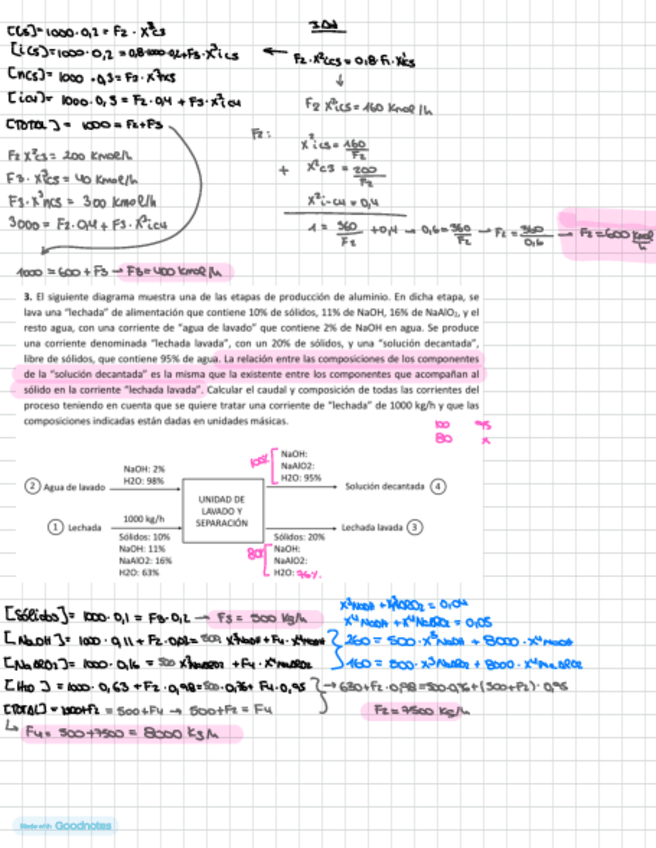 [Cs]= 1000·0,2 = F2 · X²cs
[ics]= 1000·0,2 = 0,8·1000·0,2+F3·X³ics
[ncs]= 1000·0,3= F3·X³ncs
[icu]= 1000·0,3 = F2·0,4 + F3·X³icu
[TOTAL]= 1000 = F2+F3
F2·X²ics = 0,8·F1·X¹ics
↓
F2 X²ics = 160 Kmol/h
F2 X²cs = 200 Kmol/h
F3·X³ics = 40 Kmol/h
F3·X³ncs = 300 Kmol/h
3000 = F2·0,4 + F3·X³icu
F2:
X²ics = 160/F2
+ X²cs = 200/F2
X²i-cu = 0,4
1 = 360/F2 + 0,4 → 0,6 = 360/F2 → F2 = 360/0,6 → F2 = 600 Kmol/h
1000 = 600 + F3 → F3 = 400 Kmol/h
3. El siguiente diagrama muestra una de las etapas de producción de aluminio. En dicha etapa, se
lava una "lechada" de alimentación que contiene 10% de sólidos, 11% de NaOH, 16% de NaAlO₂, y el
resto agua, con una corriente de "agua de lavado" que contiene 2% de NaOH en agua. Se produce
una corriente denominada "lechada lavada", con un 20% de sólidos, y una "solución decantada",
libre de sólidos, que contiene 95% de agua. La relación entre las composiciones de los componentes
de la "solución decantada" es la misma que la existente entre los componentes que acompañan al
sólido en la corriente "lechada lavada". Calcular el caudal y composición de todas las corrientes del
proceso teniendo en cuenta que se quiere tratar una corriente de "lechada" de 1000 kg/h y que las
composiciones indicadas están dadas en unidades másicas.
100 95
80 x
NaOH: 2%
H2O: 98%
2 Agua de lavado
100%
NaOH:
NaAlO2:
H2O: 95%
Solución decantada 4
UNIDAD DE
LAVADO Y
SEPARACIÓN
1 Lechada
1000 kg/h
Sólidos: 10%
NaOH: 11%
NaAlO2: 16%
H2O: 63%
Lechada lavada 3
Sólidos: 20%
80%
NaOH:
NaAlO2:
H2O: 76%
X³NaOH + X³NaAlO2 = 0,04
X⁴NaOH + X⁴NaAlO2 = 0,05
[Sólidos]= 1000·0,1 = F3·0,2 → F3 = 500 Kg/h
[NaOH]= 1000·0,11 + F2·0,02= 500·X³NaOH + F4·X⁴NaOH
260 = 500·X³NaOH + 8000·X⁴NaOH
[NaAlO2]= 1000·0,16 = 500 X³NaAlO2 + F4·X⁴NaAlO2
160 = 500·X³NaAlO2 + 8000·X⁴NaAlO2
[H2O]= 1000·0,63 + F2·0,98= 500·0,76+ F4·0,95
→ 630+F2·0,98=500·0,76+(500+F2)·0,95
[TOTAL]= 1000+F2 = 500+F4 → 500+F2 = F4
F2= 7500 Kg/h
↳ F4= 500+7500 = 8000 Kg/h
Made with Goodnotes